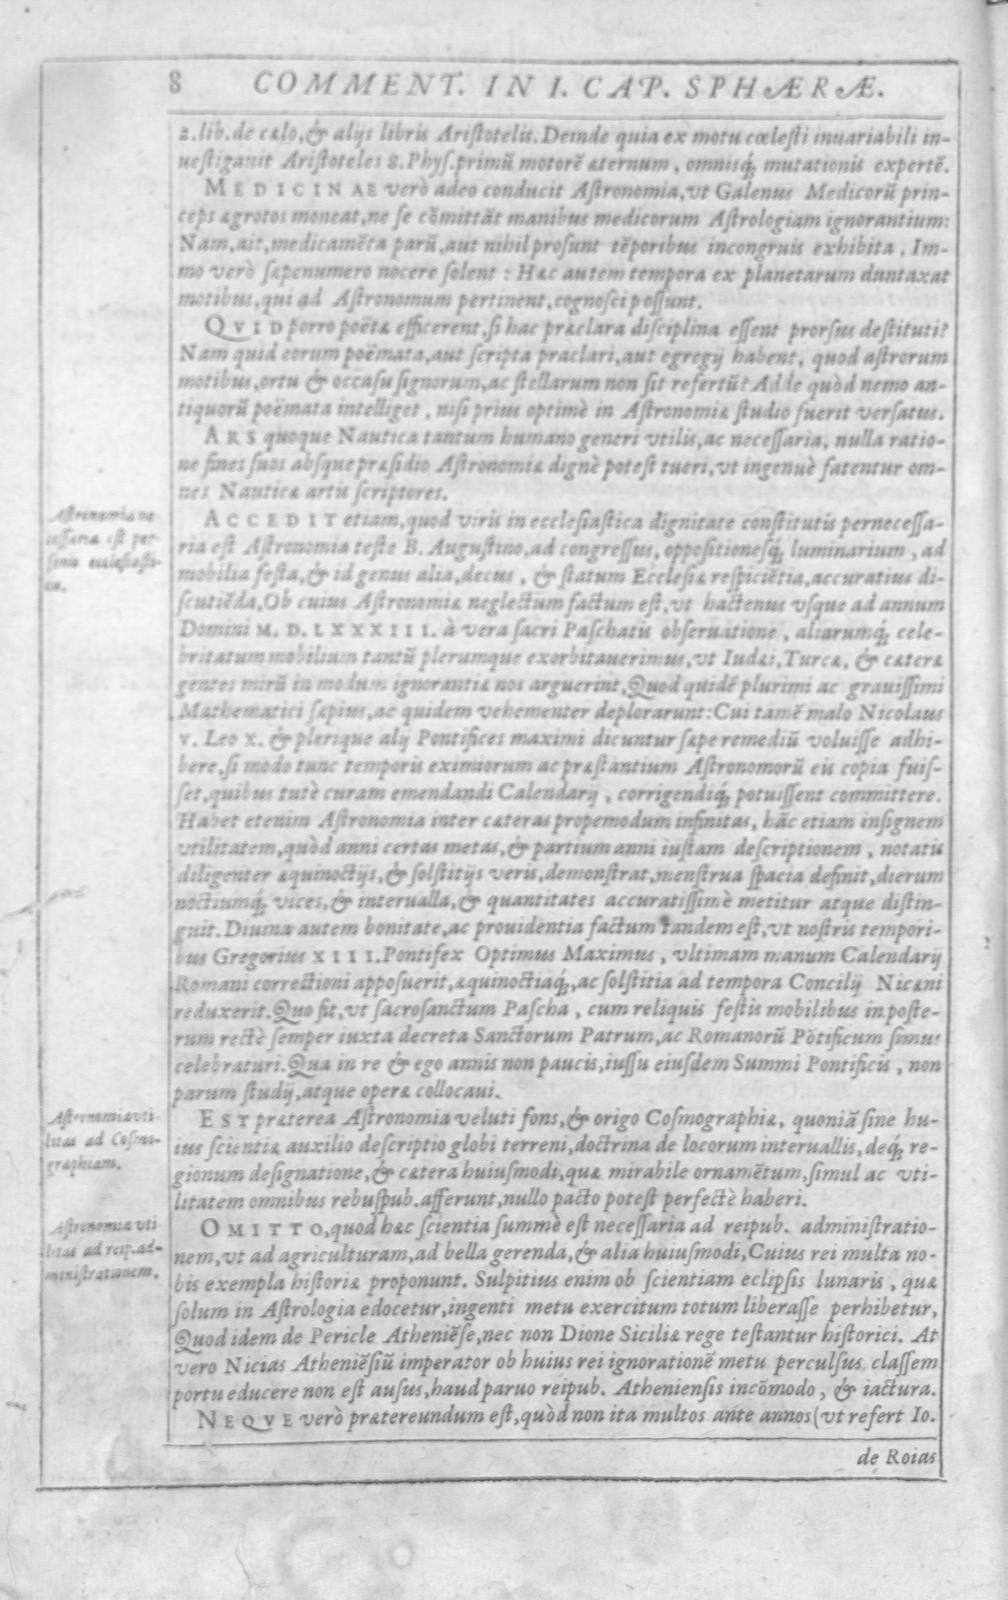 8 COMMENT. IN I. CAP. SPHÆRÆ.
2. lib. de cælo, & alijs libris Aristotelis. Deinde quia ex motu cœlesti inuariabili in-
uestigauit Aristoteles 8. Phys. primũ motorẽ æternum, omnisq́; mutationis expertẽ.
MEDICINAE verò adeo conducit Astronomia, vt Galenus Medicorũ prin-
ceps ægrotos moneat, ne se cõmittãt manibus medicorum Astrologiam ignorantium:
Nam, ait, medicamẽta parũ, aut nihil prosunt tẽporibus incongruis exhibita, Im-
mo verò sæpenumero nocere solent: Hæc autem tempora ex planetarum duntaxat
motibus, qui ad Astronomum pertinent, cognosci possunt.
QVID porro poëtæ efficerent, si hac præclara disciplina essent prorsus destituti?
Nam quid eorum poëmata, aut scripta præclari, aut egregij habent, quod astrorum
motibus, ortu & occasu signorum, ac stellarum non sit refertũ? Adde quòd nemo an-
tiquorũ poëmata intelliget, nisi prius optimè in Astronomiæ studio fuerit versatus.
ARS quoque Nautica tantum humano generi vtilis, ac necessaria, nulla ratio-
ne fines suos absque præsidio Astronomiæ dignè potest tueri, vt ingenuè fatentur om-
nes Nauticæ artis scriptores.
Astronomia ne
cessaria est per-
sonis ecclesiasti-
cis.
ACCEDIT etiam, quod viris in ecclesiastica dignitate constitutis pernecessa-
ria est Astronomia teste B. Augustino, ad congressus, oppositionesq́; luminarium, ad
mobilia festa, & id genus alia, decus, & statum Ecclesiæ respiciẽtia, accuratius di-
scutiẽda, Ob cuius Astronomiæ neglectum factum est, vt hactenus vsque ad annum
Domini M. D. LXXXIII. à vera sacri Paschatis obseruatione, aliarumq́; cele-
britatum mobilium tantũ plerumque exorbitauerimus, vt Iudæi, Turcæ, & cæteræ
gentes mirũ in modum ignorantiæ nos arguerint, Quod quidẽ plurimi ac grauissimi
Mathematici sæpius, ac quidem vehementer deplorarunt: Cui tamẽ malo Nicolaus
V. Leo X. & plerique alij Pontifices maximi dicuntur sæpe remediũ voluisse adhi-
bere, si modo tunc temporis eximiorum ac præstantium Astronomorũ eis copia fuis-
set, quibus tutè curam emendandi Calendarij, corrigendiq́; potuissent committere.
Habet etenim Astronomia inter cæteras propemodum infinitas, hãc etiam insignem
vtilitatem, quòd anni certas metas, & partium anni iustam descriptionem, notatis
diligenter æquinoctijs, & solstitijs veris, demonstrat, menstrua spacia definit, dierum
noctiumq́; vices, & interualla, & quantitates accuratissimè metitur atque distin-
guit. Diuina autem bonitate, ac prouidentia factum tandem est, vt nostris tempori-
bus Gregorius XIII. Pontifex Optimus Maximus, vltimam manum Calendarij
Romani correctioni apposuerit, æquinoctiaq́;, ac solstitia ad tempora Concilij Nicæni
reduxerit. Quo fit, vt sacrosanctum Pascha, cum reliquis festis mobilibus in poste-
rum rectè semper iuxta decreta Sanctorum Patrum, ac Romanorũ Põtificum simus
celebraturi. Qua in re & ego annis non paucis, iussu eiusdem Summi Pontificis, non
parum studij, atque operæ collocaui.
Astronomiæ vti-
litas ad Cosmo-
graphiam.
EST præterea Astronomia veluti fons, & origo Cosmographiæ, quoniã sine hu-
ius scientiæ auxilio descriptio globi terreni, doctrina de locorum interuallis, deq́; re-
gionum designatione, & cætera huiusmodi, quæ mirabile ornamẽtum, simul ac vti-
litatem omnibus rebuspub. afferunt, nullo pacto potest perfectè haberi.
Astronomiæ vti
litas ad reip. ad-
ministrationem.
OMITTO, quod hæc scientia summè est necessaria ad reipub. administratio-
nem, vt ad agriculturam, ad bella gerenda, & alia huiusmodi, Cuius rei multa no-
bis exempla historiæ proponunt. Sulpitius enim ob scientiam eclipsis lunaris, quæ
solum in Astrologia edocetur, ingenti metu exercitum totum liberasse perhibetur,
Quod idem de Pericle Atheniẽse, nec non Dione Siciliæ rege testantur historici. At
vero Nicias Atheniẽsiũ imperator ob huius rei ignorationẽ metu perculsus classem
portu educere non est ausus, haud paruo reipub. Atheniensis incõmodo, & iactura.
NEQVE verò prætereundum est, quòd non ita multos ante annos (vt refert Io.
de Roias